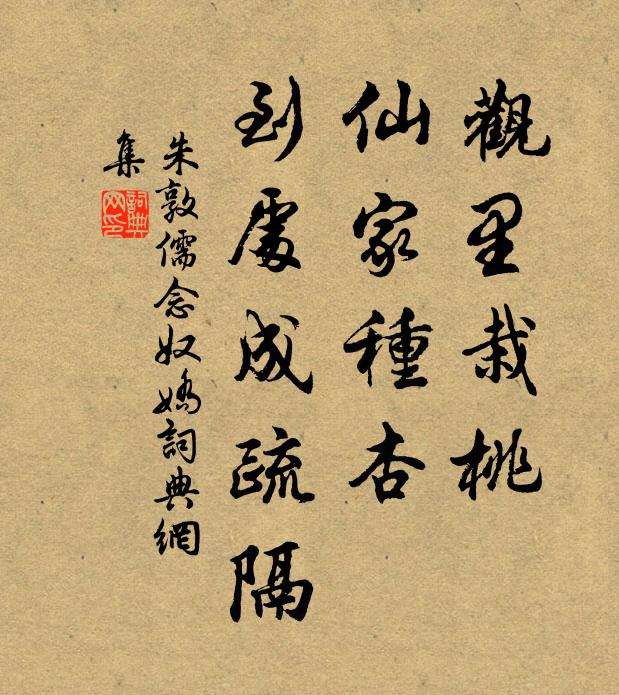 觀里栽桃
仙家種杏
到處成疏隔
朱敦儒念奴嬌詞典網
集
詞典
网印